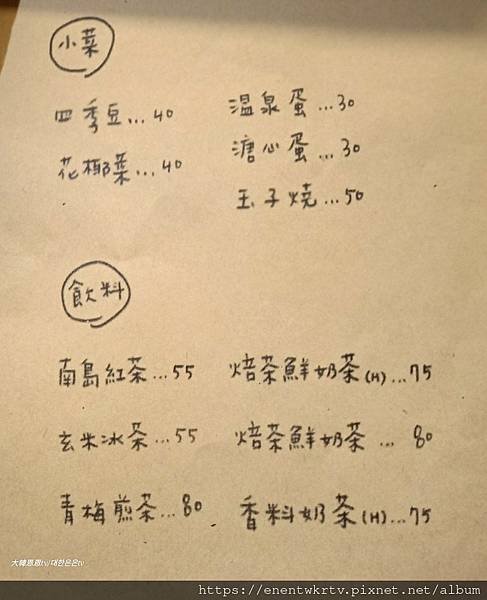 小菜
四季豆...40
花椰菜...40
温泉蛋...30
溏心蛋...30
玉子燒...50
飲料
南島紅茶...55
玄米冰茶...55
青梅煎茶...80
焙茶鮮奶茶(H)...75
焙茶鮮奶茶...80
香料奶茶(H)...75
大韓恩恩tv/대한은은tv
https://enentwkrtv.pixnet.net/album